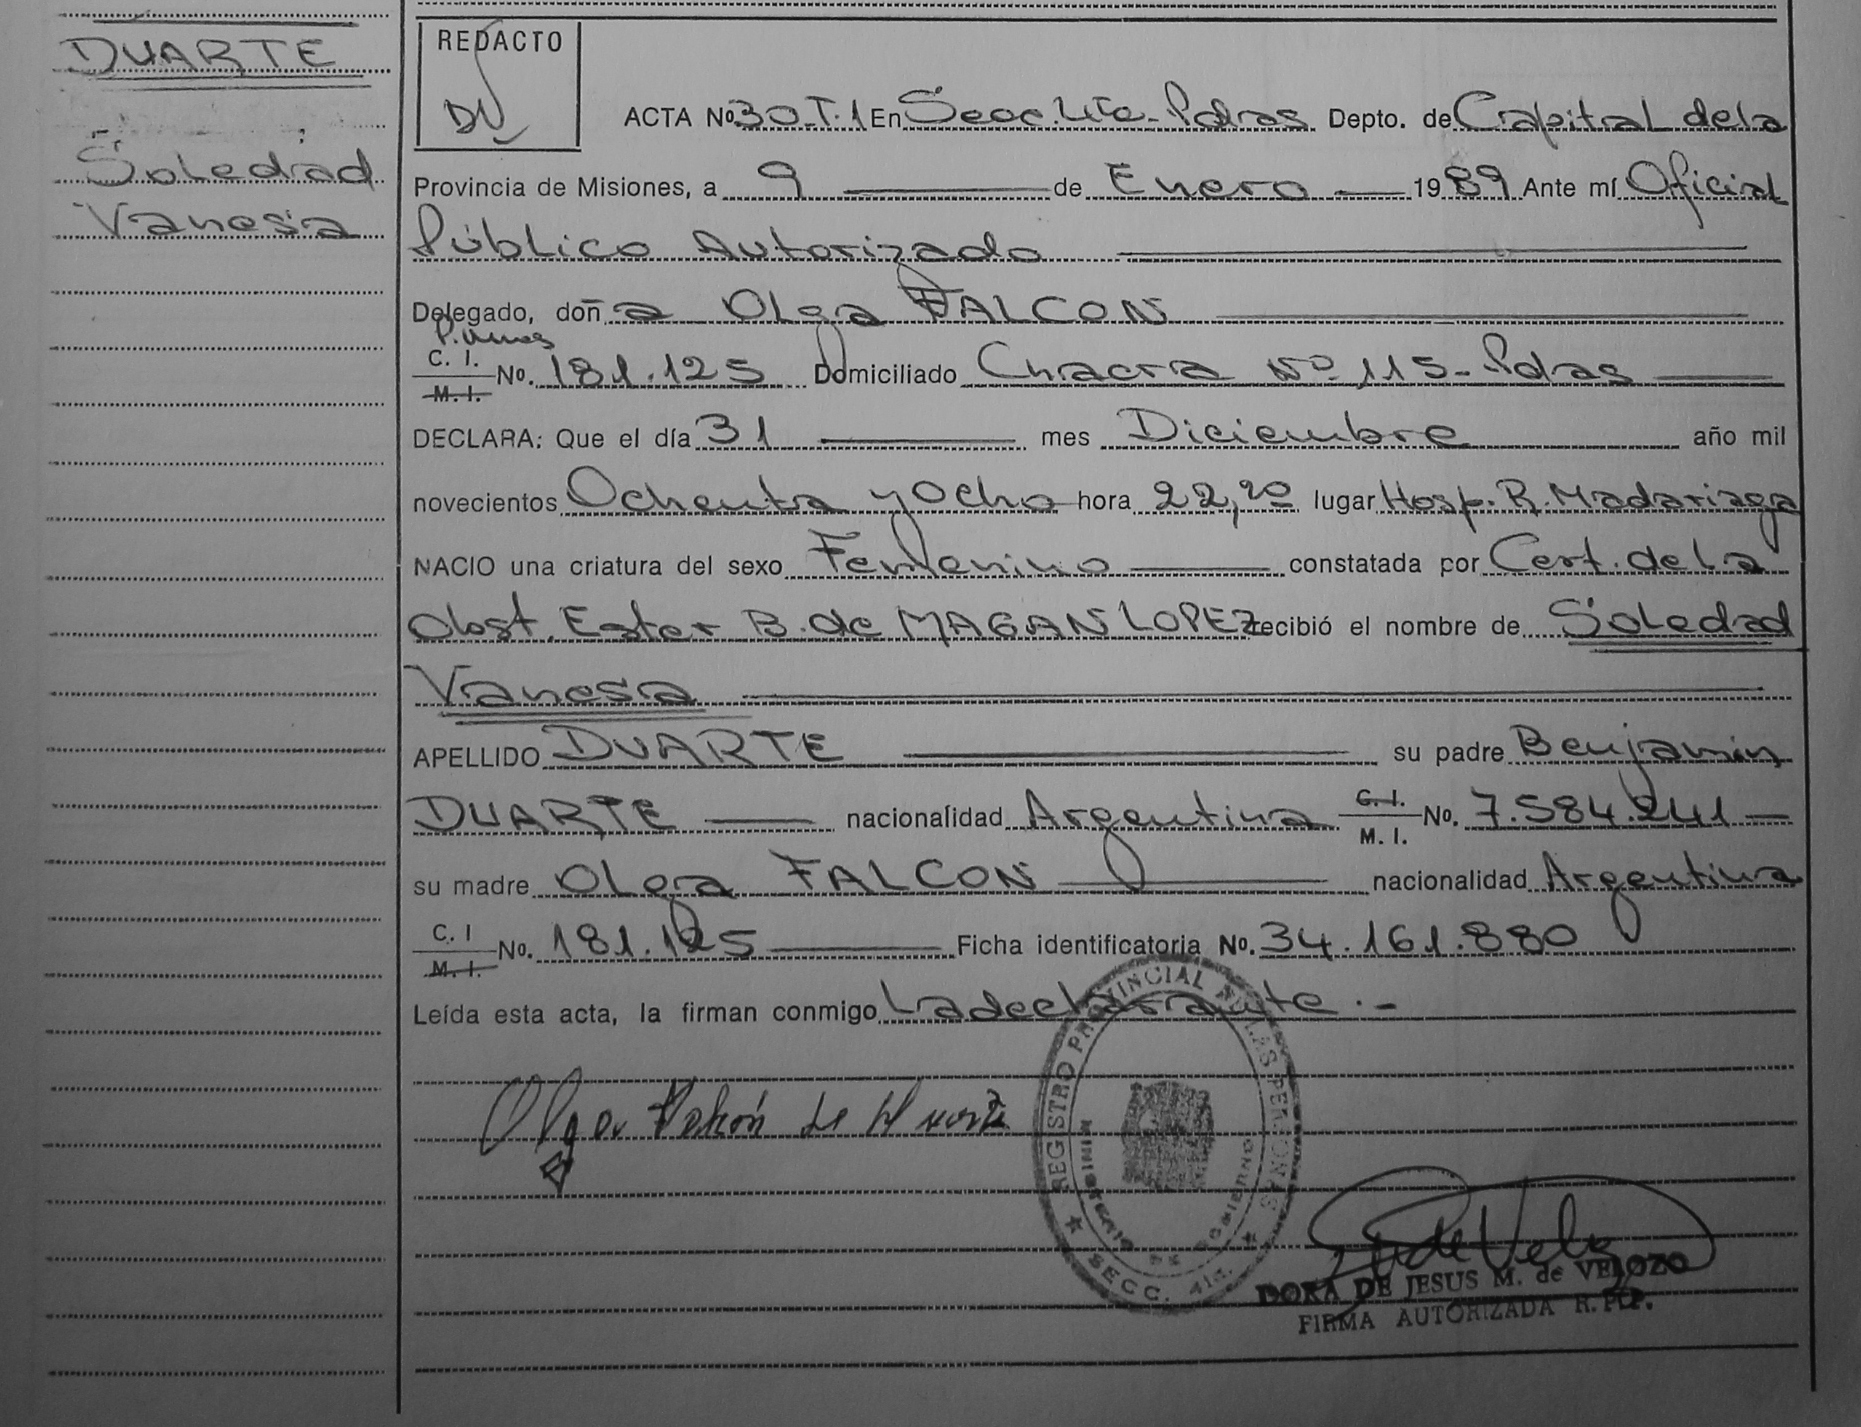 DUARTE
Soledad
Vanesa
REDACTO
ACTA Nº 30-T.1 En Secc. 4ta. Pdas Depto. de Capital de la
Provincia de Misiones, a 9 de Enero 1989 Ante mí Oficial
Público Autorizado
Delegado, doña Olga FALCON
C. I. M. I. No. 181.125 Domiciliado Chacra Nº 115 - Pdas
DECLARA: Que el día 31 mes Diciembre año mil
novecientos Ochenta y Ocho hora 22,20 lugar Hosp. R. Madariaga
NACIO una criatura del sexo Femenino constatada por Cert. de la
Obst. Ester B. de MAGAN LOPEZ recibió el nombre de Soledad
Vanesa
APELLIDO DUARTE su padre Benjamín
DUARTE nacionalidad Argentina C. I. M. I. No. 7.584.241
su madre Olga FALCON nacionalidad Argentina
C. I M. I. No. 181.125 Ficha identificatoria No. 34.161.880
Leída esta acta, la firman conmigo La declarante.-
Olga Falcón de Duarte
REGISTRO PROVINCIAL DE LAS PERSONAS
Ministerio de Gobierno
SECC. 4ta.
DORA DE JESUS M. de VELOZO
FIRMA AUTORIZADA R.P.P.